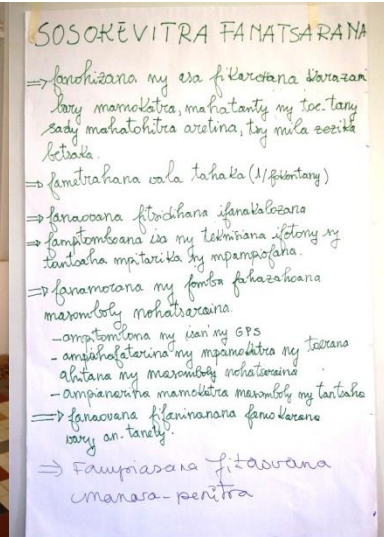 SOSOKEVITRA FANATSARANA
⇒ fanohizana ny asa fikarohana karazam
bary mamokatra, mahatanty ny toe-tany
sady mahatohitra aretina, tsy mila zezika
betsaka.
⇒ fametrahana vala tahaka (1/fokontany)
⇒ fanaovana fitsidihana ifanakalozana
⇒ fampitomboana isa ny teknisiana ifotony sy
tantsaha mpitarika sy mpampofana.
⇒ fanamorana ny fomba fahazahoana
masomboly nohatsaraina.
- ampitombona ny isan'ny GPS
- ampahafatarina ny mpamokatra ny toerana
ahitana ny masomboly nohatsaraina
- ampianarina mamokatra masomboly ny tantsaha
⇒ fanaovana fifaninanana famokarana
vary an-tanety.
⇒ Fampiasana fitaovana
manara-penitra